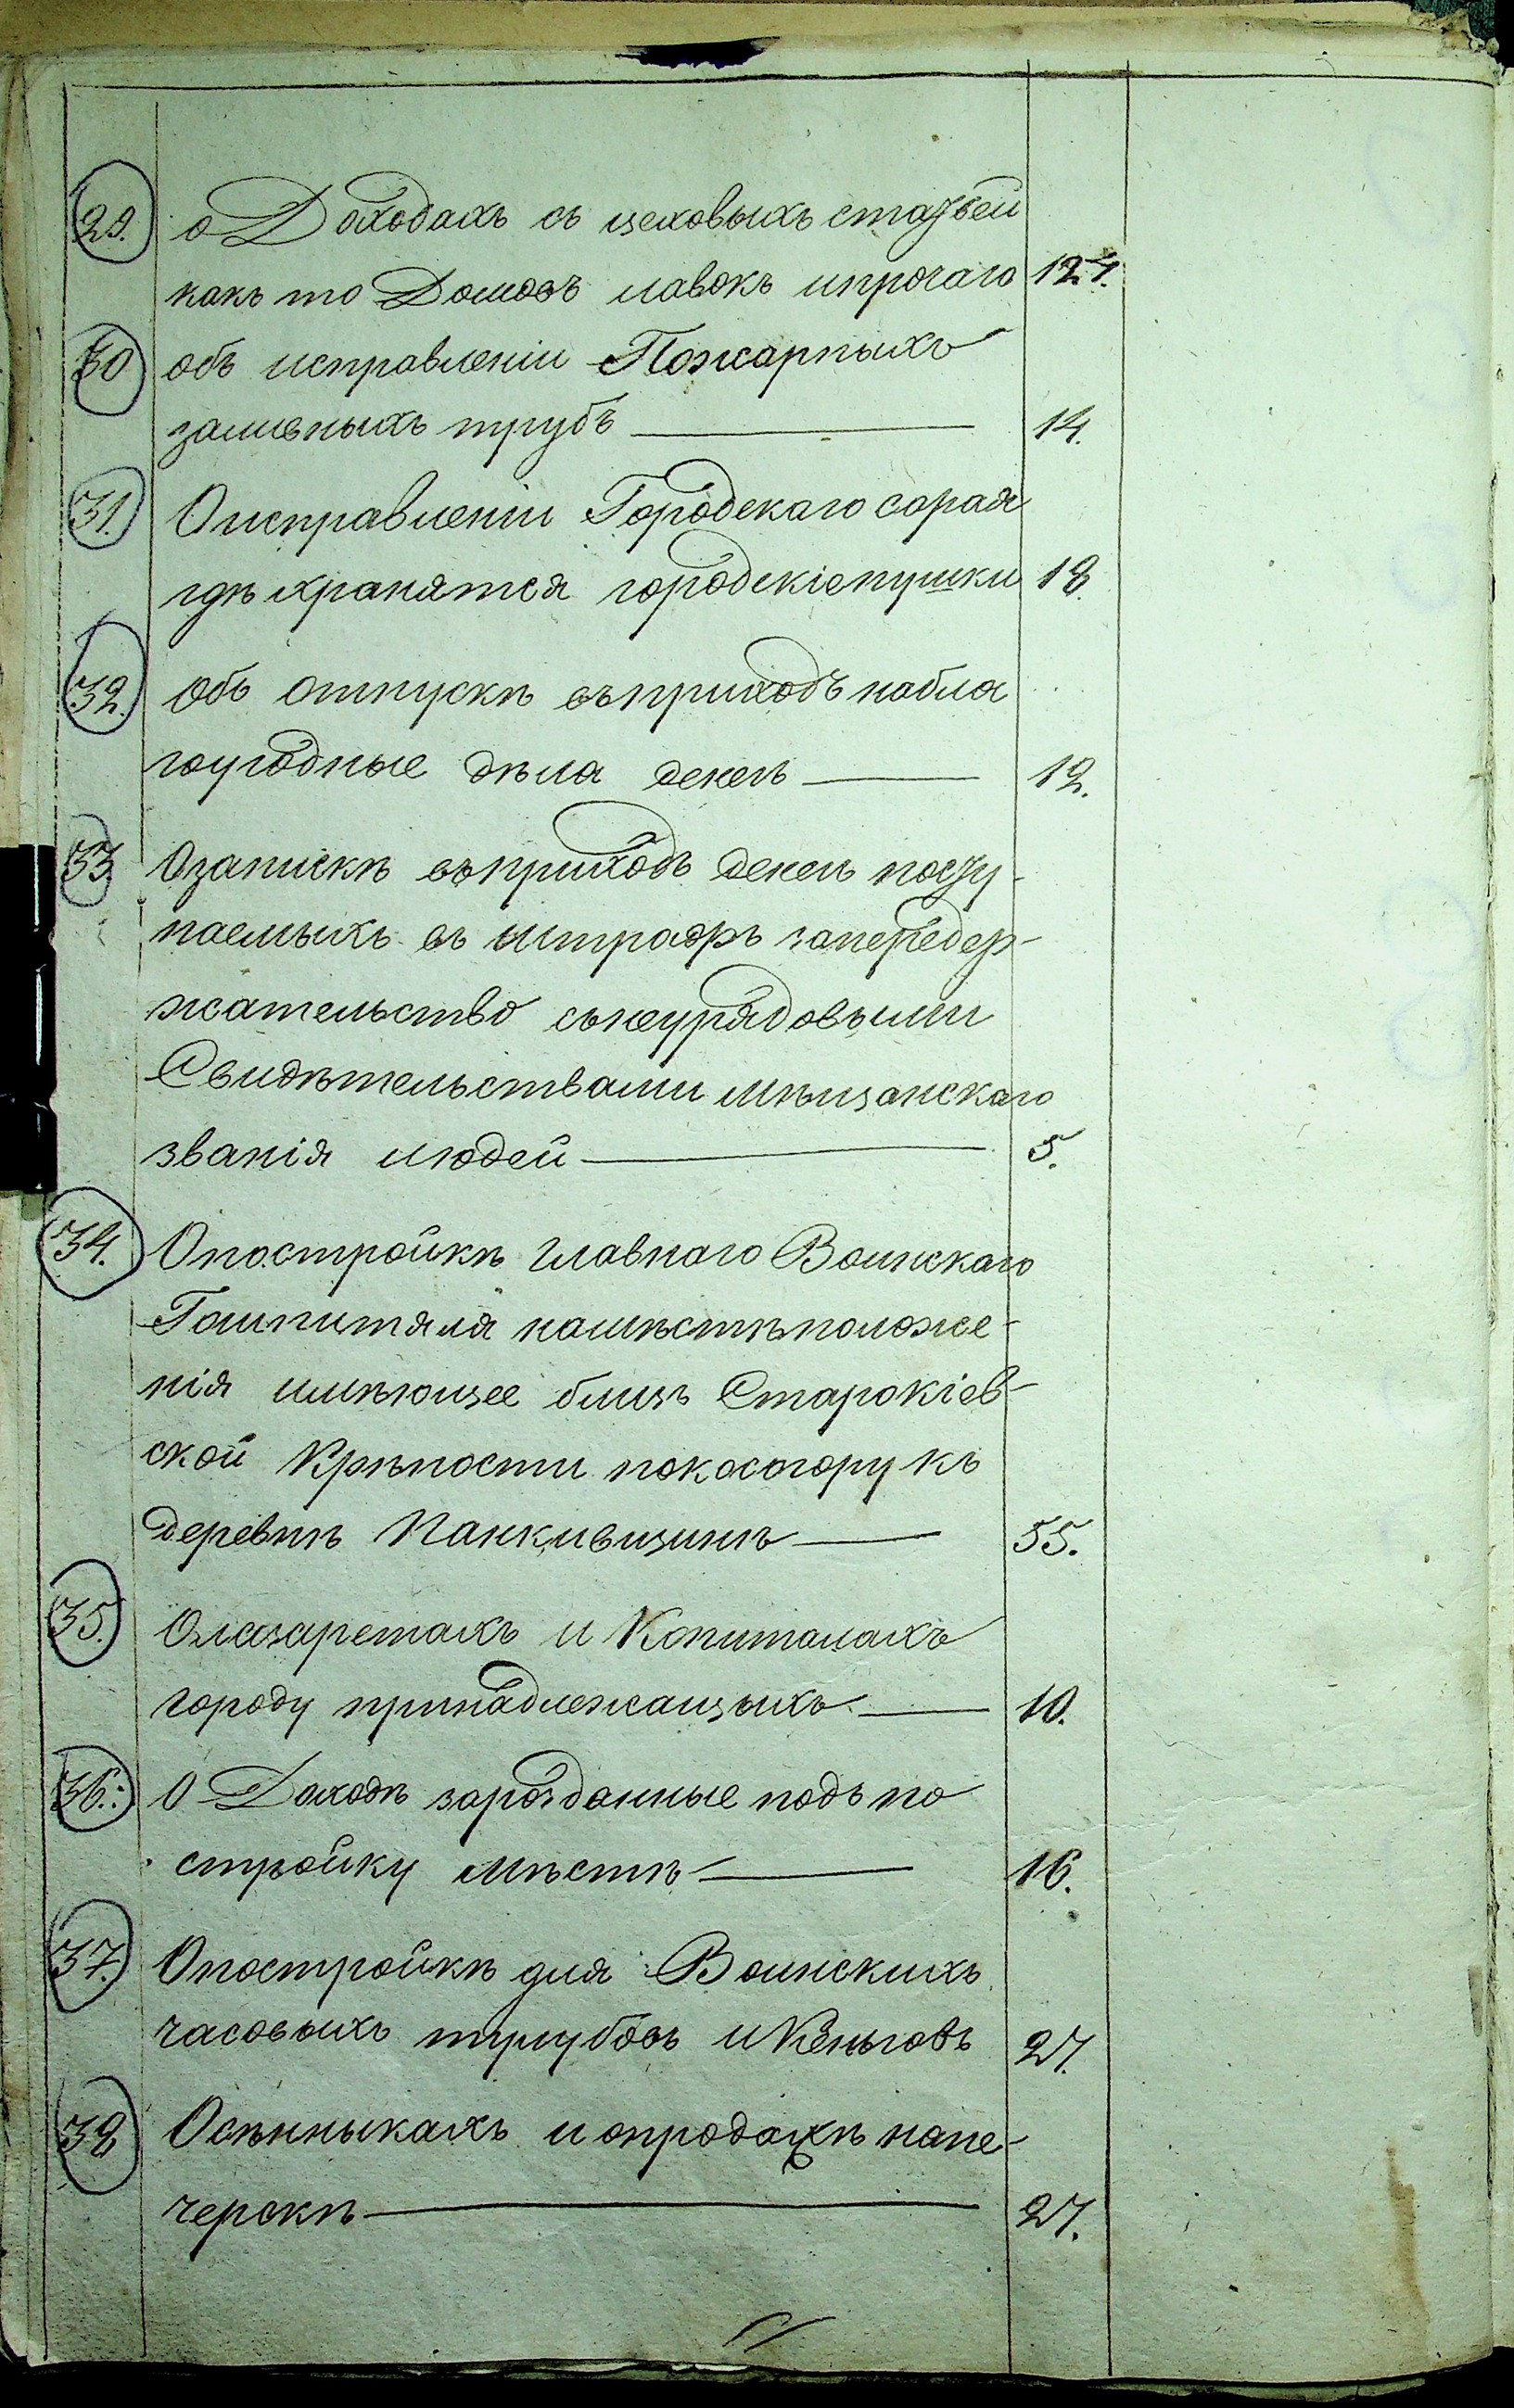 29. о Доходахъ съ цеховыхъ статьей
какъ то Домовъ лавокъ ипрочаго 124.
30 объ исправленіи Пожарныхъ
заливныхъ трубъ — 14.
31. Оисправленіи Городскаго сарая
гдѣ хранятся городскіе пушки 18.
32. Объ отпускѣ въприходъ набла
гоугодные дѣла денегъ — 12.
33. Озапискѣ въприходъ денегъ посту-
паемыхъ въ штрафъ запередер-
жательство съ неурядовыми
Свидѣтельствами мѣщанскаго
званія людей — 5.
34. Опостройкѣ главнаго Воинскаго
Гошпиталя намѣстѣ положе-
нія имѣющее близъ Старокіев-
ской Крѣпости покосогору къ
деревнѣ Панкивщинѣ — 55.
35. Олазаретахъ и Копиталахъ
городу принадлежащыхъ — 10.
36. О Доходѣ зарозданные подъ по
стройку мѣстъ — 16.
37. Опостройкѣ для Воинскихъ
часовыхъ тулубовъ и Кеньговъ 27.
38 Осѣнныкахъ и опродажѣ напе-
черскѣ — 27.